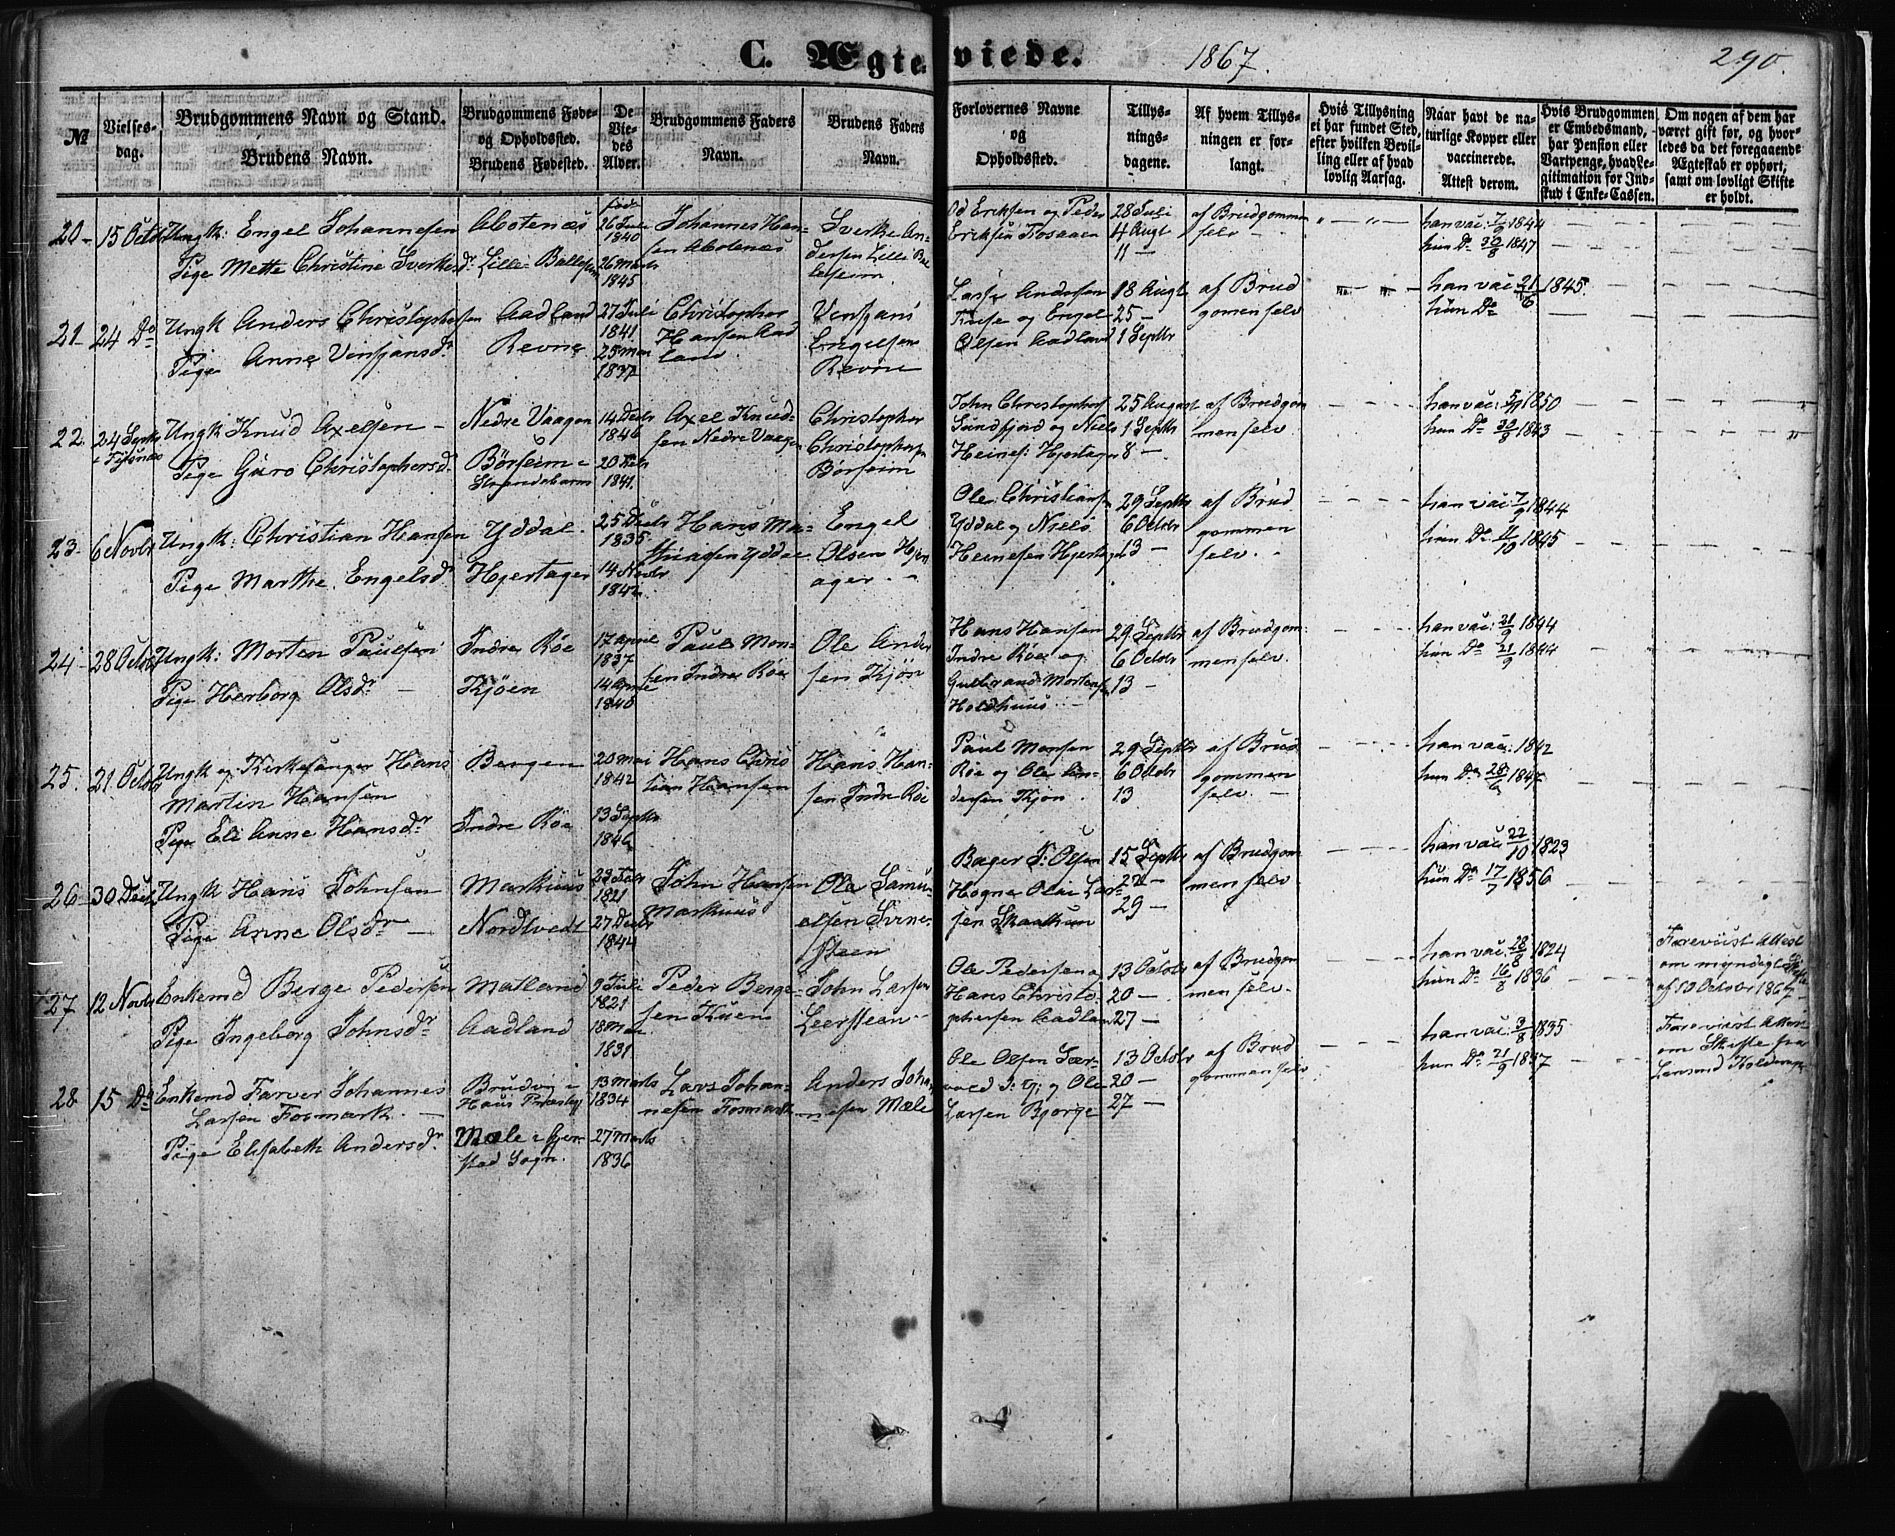 C. Ægteviede. 1867. 290.
№
Vielses-
dag.
Brudgommens Navn og Stand.
Brudens Navn.
Brudgommens Føde-
og Opholdssted.
Brudens Fødested.
De
Vie-
des
Alder.
Brudgommens Faders
Navn.
Brudens Faders
Navn.
Forlovernes Navne
og
Opholdssted.
Tillys-
nings-
dagene.
Af hvem Tillys-
ningen er for-
langt.
Hvis Tillysning
ei har fundet Sted,
efter hvilken Bevil-
ling eller af hvad
lovlig Aarsag.
Naar havt de na-
turlige Kopper eller
vaccinerede.
Attest derom.
Hvis Brudgommen
er Embedsmand,
har Pension eller
Vartpenge, hvad Le-
gitimation for Ind-
skud i Enke-Cassen.
Om nogen af dem har
været gift før, og hvor-
ledes da det foregaaende
Ægteskab er ophørt,
samt om lovligt Skifte
er holdt.
20 - 15 Octbr Ungk: Engel Johannesen
Pige Mette Christine Sverkesdr
Abotenæs
Lille Ballesem
født
26 Juli
1840
26 Marts
1845
Johannes Han-
sen Abotenæs
Sverke An-
dersen Lille Bal-
lesem
Od Eriksen og Peder
Eriksen Fosaaen
28 Juli
4 Augt
11 —
af Brudgommen
selv -
" — " —
han vac: 7/9 1844
hun Do 30/8 1847
21 - 24 Do Ungk Anders Christophersen
Pige Anne Vinsjansdr
Aadland
Revne
27 Juli
1841
25 Mai
1837
Christopher
Hansen Aad
land
Vinsjans
Engelsen
Revne
Lasse Andersen
Engel
Olsen Aadland
18 Augt
25 —
1 Septbr
af Brud
gomen selv
han vac 21/6 1845.
hun Do
22. 24 Septbr
i Fitjenæs
Ungk Knud Axelsen -
Pige Guro Christophersdr
Nedre Vaagen
Børsheim i
Strandebarm
14 Decbr
1846
20 Febr
1841.
Axel Knud-
sen Nedre Vaagen
Christopher
Christophersen
Børsheim
John Christophers
Sundfjord og Niels
Heines: Hjertager
25 August
1 Septbr
8 —
af Brudgom
men selv
han vac: 5/9 1850
hun Do 30/8 1843
23 - 6 Novbr Ungk: Christian Hansen
Pige Marthe Engelsdr
Yddal -
Hjertager
25 Decbr
1835
14 Novbr
1842
Hans Ma-
thiasen Yddal
Engel
Olsen Hjert
ager - -
Ole Christians
Yddal og Niels
Heinesen Hjertager
29 Septbr
6 Octobr
13 —
af Brud
gommen
selv -
han vac 7/9 1844
hun Do 11/10 1845
24 - 28 Octbr Ungk: Morten Paulsen
Pige Herborg Olsdr —
Indre Røe
Kjøen
17 April
1837
14 April
1840
Paul Mon-
sen Indre Røe
Ole Ander
sen Kjøn
Hans Hansen
Indre Røe og
Gulbrand Mortens
Holdhuus -
29 Septbr
6 Octobr
13 —
af Brudgom
men selv
han vac: 21/9 1844
hun Do 21/9 1844
25. 21 Octbr Ungk og Kirkesanger Hans
Martin Hansen
Pige Eli Anne Hansdr
Bergen
Indre Røe
20 Mai
1842
13 Septbr
1846
Hans Chris
tian Hansen
Hans Han-
sen Indre Røe
Paul Monsen
Røe og Ole An-
dersen Kjøn
29 Septbr
6 Octobr
13
af Brud
gommen
selv -
han vac: 1842
hun Do 28/6 1847
26 - 30 Decbr Ungk Hans Johnsen
Pige Anne Olsdr —
Markuus
Nordtvedt
23 Febr
1821
27 Decbr
1844
John Hansen
Markuus
Ole Samu-
elsen Svine-
steen
Bager J: Olsen
Hogne Olai Lar-
sen Skaathun
15 Septbr
22 —
29 —
af Brudgom
men selv
han vac: 22/10 1823
hun Do 17/7 1856
27 12 Novbr Enkemd Berge Pedersen
Pige Ingeborg Johnsdr
Matland
Aadland
9 Juli
1821
18 Mai
1831
Peder Berge-
sen Kuen
John Larsen
Leersteen -
Ole Pedersen og
Hans Christo-
phersen Aadland
13 Octobr
20 —
27 —
af Brudgom
men selv
han vac: 28/8 1824
hun Do 16/8 1836
Foreviist Attest
om myndigt Skifte
af 10 Octobr 1867 -
28 15 Do Enkemd Farver Johannes
Larsen Fosmark -
Pige Elisabeth Andersdr
Brudvig i
Haus Præstegj
Mæle i Gjer
stad Sogn.
13 Marts
1834
27 Marts
1836
Lars Johan-
nesen Fosmark
Anders Joha
nesen Mæle
Ole Olsen Sær-
vold og Ole
Larsen Bjorge
13 Octobr
20 —
27 —
af Brud
gommen selv
han vac: 3/8 1835
hun Do 21/9 1837
Foreviist Attest
om Skifte fra
Lensmd